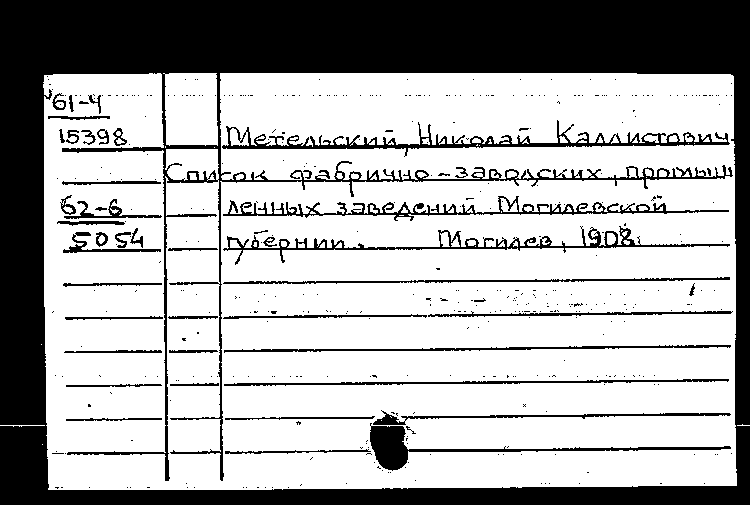 61-4
15398 Метельский, Николай Каллистович
Список фабрично-заводских, промыш
62-6 ленных заведений Могилевской
5054 губернии. Могилев, 1908.